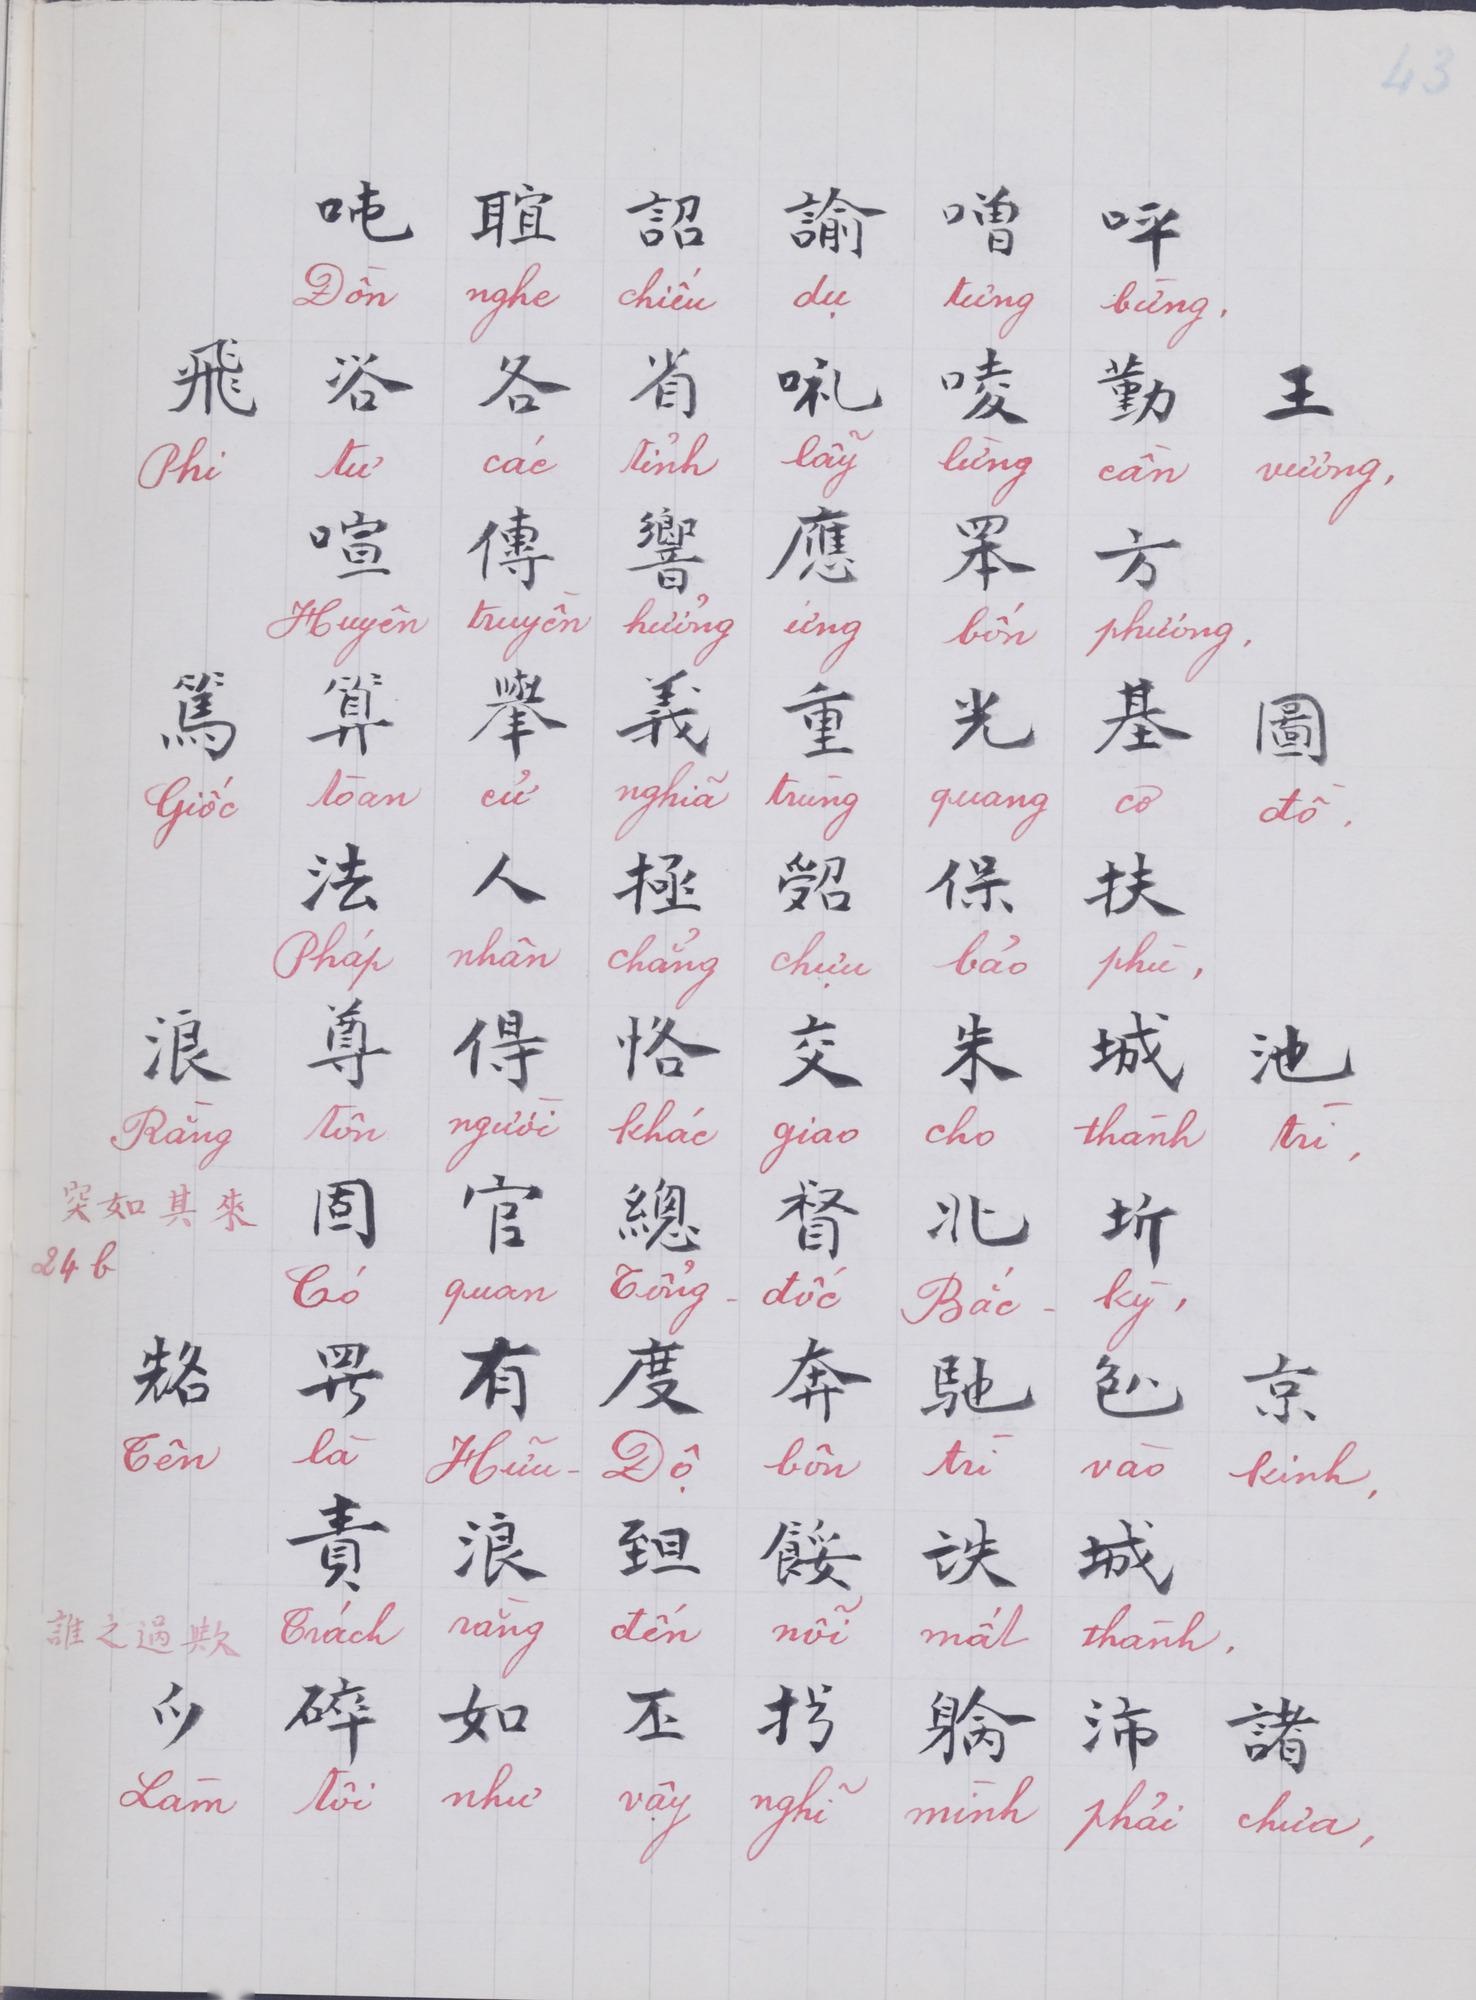 43
吨 聒 詔 諭 噌 呯
Đồn nghe chiếu dụ tưng bừng,
飛 咨 各 省 㖼 唛 勤 王
Phi tư các tỉnh lẫy lừng cần vương,
喧 傳 響 應 罘 方
Huyên truyền hưởng ứng bốn phương,
篤 算 舉 義 重 光 基 圖
Giốc toan cử nghĩa trùng quang cơ đồ.
法 人 極 保 扶
Pháp nhân chẳng chịu bảo phù,
浪 尊 得 恪 交 朱 城 池
Rằng tôn người khác giao cho thành trì,
突如其來
固 官 總 督 北 圻
24b
Có quan Tổng-đốc Bắc-kỳ,
有 度 奔 馳 京
Tên là Hữu-Độ bôn trì vào kinh,
責 浪 餒 城
誰之過歟
Trách rằng đến nỗi mất thành,
碎 如 丕 沛 諸
Làm tôi như vậy nghĩ mình phải chưa,